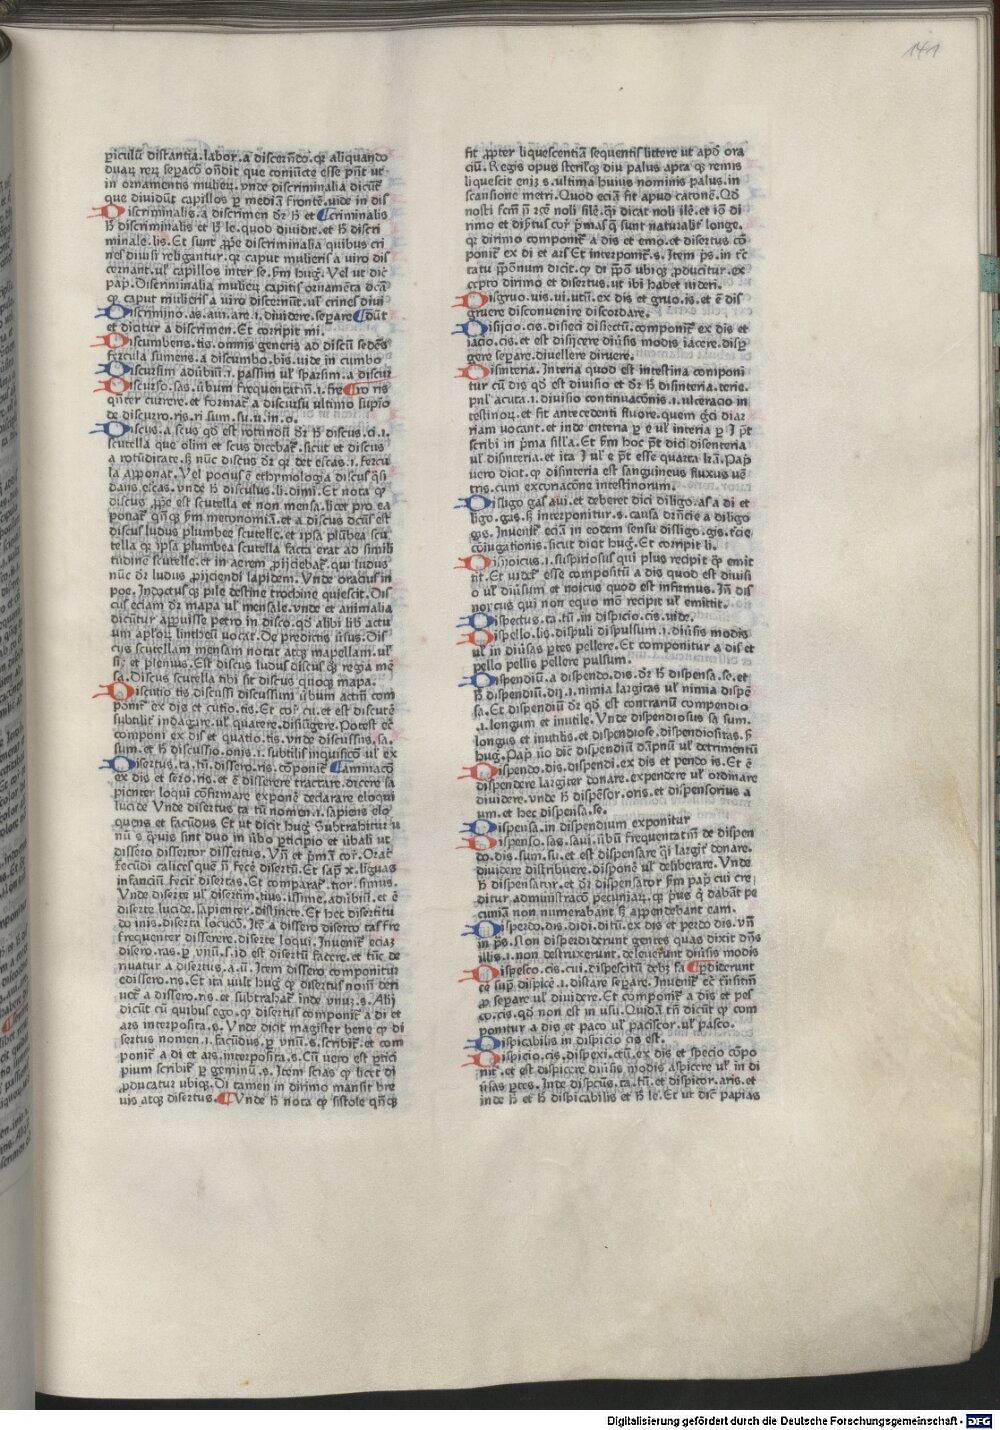 141
ꝑiculū distantia.labor.a discerñdo.qꝛ aliquando
duaꝝ reꝝ seꝑacō oñdit que coniūcte esse pñt ut
in ornamentis mulieꝝ.vnde discriminalia dicūt
que diuidūt capillos ꝑ mediā frontē.vide in dis
Discriminalis.a discrimen dꝛ ħ et criminalis
ħ discriminalis et ħ le.quod diuidit.et ħ discri
minale.lis.Et sunt ꝓpe discriminalia quibus cri
nes diuisi religantur.qꝛ caput mulieris a viro dis
cernant.ul̓ capillos inter se.ẜm hug. Vel ut dic̄
pap. Discriminalia mulieꝝ capitis ornamēta dc̄a
ꝙ caput mulieris a viro discernūt.ul̓ crines diui
Discrimino.as.aui.are.i.diuidere.seꝑare dūt
et dicitur a discrimen. Et corripit mi.
Discumbens.tis.omnis generis ad discū sedēs
fercula sumens.a discumbo.bis.uide in cumbo
Discursim adub̄iū.i.passim ul̓ sparsim.a discur
Discurso.sas.ūbum frequentatiū.i.fre ro ris
qñter currere.et formatꝛ a discursu ultimo supīo
de discurro.ris.ri sum.su.u.in.o.
Discus.a scus qd̓ est rotundū dꝛ ħ discus.ci.i.
scutella que olim et scus dicebatꝛ.sicut et discus
a rotūditate.ẜ nūc discus dꝛ qꝛ det escas.i.fercu
la apponat. Vel pocius ē ethymologia discus q̄si
dans escas.vnde ħ disculus.li.dimi.Et nota ꝙ
discus ꝓpe est scutella et non mensa.licet pro ea
ponatꝛ qñqꝫ ẜm metonomiā.et a discus dcūs est
discus ludus plumbee scutelle.et ipsa plūbea scu
tella qꝛ ipsa plumbea scutella facta erat ad simili
tudinē scutelle.et in aerem ꝓijciebatꝛ.qui ludus
nūc dꝛ ludus ꝓijciendi lapidem. Vnde oracius in
poe. Indoctus qꝫ pile destine trochine quiescit. Dis
cus eciam dꝛ mapa ul̓ mensale.vnde et animalia
dicūtur apꝑuisse petro in disco.qd̓ alibi lib actu
um apl̓oꝝ lintheū uocat. De predictis ūsus. Dis
cus scutellam mensam notat atqꝫ mapellam.ul̓
sic et plenius. Est discus ludus discus qꝫ regia mē
sa.Discus scutella tibi sit discus quoqꝫ mapa.
Discutio tis discussi discussum ūbum actiū com
ponitꝛ ex dis et cutio.tis. Et corꝛ cu.et est discutē
subtilitꝛ indagare.ul̓ quatere.disiūgere.Potest ec̄
componi ex dis et quatio.tis.vnde discussus.sa.
sum.et ħ discussio.onis.i.subtilis inquisicō ul̓ ex
Disertus.ta.tū.dissero.ris.cōponitꝛ aminacō
ex dis et sero.ris.et ē disserere tractare.dicere sa
pienter loqui cōfirmare exponē declarare eloqui
lucide Vnde disertus ta tū nomen.i.sapiens elo
quens et facūdus Et ut dicit hug Subtrahitur u
nū s quis sint duo in ūbo ꝑticipio et ūbali ut
dissero dissertor dissertus. Vñ et pmā corꝛ. Oratꝛ
Fecūdi calices quē ñ fecē disertū. Et sapꝛ x. liguas
infanciū fecit disertas. Et comparatꝛ.tior.simus.
Vnde diserte ul̓ disertim.tius.issime.adūbiū.et ē
diserte lucide.sapienter.distincte. Et hec disertitu
do inis.diserta locucō. Itē a dissero diserto tas fre
frequenter disserere.diserte loqui. Inuenitꝛ eciaꝫ
disero.ras.ꝑ vnū.s.id est disertū facere.et tūc de
riuatur a disertus.a.ū. Item dissero componitur
edissero.ris. Et ita uult hug ꝙ disertus noī deri
uetꝛ a dissero.ris.et subtrahatꝛ inde vnuꝫ.s. Alij
dicūt cū quibus ego.ꝙ disertus componitꝛ a di et
ars interposita.s. Vnde dicit magister bene ꝙ di
sertus nomen.i.facūdus.ꝑ vnū.s.scribitꝛ.et com
ponitꝛ a di et ars.interposita.s. Cū vero est ꝑtici
pium scribitꝛ ꝑ geminū.s. Item scias ꝙ licet di
ꝓducatur ubiqꝫ. Di tamen in dirimo mansit bre
uis atqꝫ disertus. Vnde ħ nota ꝙ sistole qñqꝫ
fit ꝓpter liquescentiā sequentis littere ut apd̓ ora
ciū. Regis opus sterilqꝫ diu palus apta qꝫ remis
liquescit eniꝫ s.ultima huius nominis palus.in
scansione metri. Quod eciā fit apud catonē. Qd̓
nosti fcm̄ ñ rc̄e noli silē. qꝛ dicat noli ilē.et iō di
rimo et disꝛtus corꝛ pꝛmas q̄ sunt naturalitꝛ longe.
qꝛ dirimo componitꝛ a dis et emo.et disertus cō
ponitꝛ ex di et ars Et interponitꝛ.s. Item pꝛs.in tc̄
tatu ꝓpōnum dicit.ꝙ di ꝓpō ubiqꝫ ꝓducitur.ex
cepto dirimo et disertus.ut ibi habet uideri.
Disgruo.uis.ui.utū.ex dis et gruo.is.et ē dis
gruere disconuenire discordare.
Disijcio.cis.disieci disiectū.componitꝛ ex dis et
iacio.cis.et est disijcere diūsis modis iacere.disꝑ
gere seꝑare.diuellere diruere.
Disinteria. Interia quod est intestina componi
tur cū dis qd̓ est diuisio et dꝛ ħ disinteria.terie.
pnl̓ acuta.i.diuisio continuacōnis.i.ulceracio in
testinoꝝ.et fit antecedenti fluore.quem gꝛci diar
riam uocant.et inde enteria ꝑ e ul̓ interia ꝑ I pt̄
scribi in pꝛma silla. Et ẜm hoc pt̄ dici disenteria
ul̓ disinteria.et ita I ul̓ e pt̄ esse quarta lrā. Papꝛ
uero dicit.ꝙ disinteria est sanguineus fluxus uē
tris.cum excoriacōne intestinorum.
Disligo gas aui.et deberet dici diligo.as a di et
ligo.gas.ẜ interponitur.s. causa drñcie a diligo
gis. Inuenitꝛ eciā in eodem sensu disligo.gis.tcie
cōiugationis.sicut dicit hug. Et corripit li.
Disnoicus.i.suspiriosus qui plus recipit ꝙ̄ emit
tit. Et uidetꝛ esse compositū a dis quod est diuisi
o ul̓ diūsum et noicus quod est infirmus. Iñ dis
noycus qui non equo mō recipit ul̓ emittit.
Dispectus.ta.tū.in dispicio.cis.uide.
Dispello.lis.dispuli dispulsum.i.diūsis modis
ul̓ in diūsas ꝑtes pellere. Et componitur a dis et
pello pellis pellere pulsum.
Dispendiū.a dispendo.dis.dꝛ ħ dispensa.se.et
ħ dispendiū.dij.i.nimia largitas ul̓ nimia dispē
sa. Et dispendiū dꝛ qd̓ est contrariū compendio
.i.longum et inutile. Vnde dispendiosus sa sum.
longus et inutilis.et dispendiose.dispendiositas.ẜ
hug. Papꝛ ūo dic̄ dispendiū dāpnū ul̓ detrimentū
Dispendo.dis.dispendi.ex dis et pendo is. Et ē
dispendere largiter donare.expendere ul̓ ordinare
diuidere.vnde ħ dispēsor.oris.et dispensorius a
um.et hec dispensa.se.
Dispensa.in dispendium exponitur
Dispenso.sas.saui.ūbū frequentatiū de dispen
do.dis.sum.su.et est dispensare q̄si largitꝛ donare.
diuidere distribuere.disponē ul̓ deliberare. Vnde
ħ dispensatur.et dꝛ dispensator ẜm papꝛ cui cre
ditur administracō pecuniaꝝ.qꝛ pꝛus q̄ dabāt pe
cuniā non numerabant ẜ appendebant eam.
Disperdo.dis.didi.ditū.ex dis et perdo dis. vñ
in pꝛs. Non disperdiderunt gentes quas dixit dn̄s
illis.i.non destruxerunt.deleuerunt diūsis modis
Dispesco.cis.cui.dispescitū debꝫ fa ꝑdiderunt
ce suꝑ dispicē.i.distare seꝑare. Inuenitꝛ ec̄ tn̄sitm̄
ꝓ seꝑare ul̓ diuidere. Et componitꝛ a dis et pes
co.cis.qd̓ non est in usu. Quidā tñ dicūt ꝙ com
ponitur a dis et paco ul̓ paciscor.ul̓ pasco.
Dispicabilis in dispicio cis est.
Dispicio.cis.dispexi.ctū.ex dis et specio cōpo
nitꝛ.et est dispicere diūsis modis aspicere ul̓ in di
ūsas ꝑtes. Inde dispctūs.ta.tū.et dispicor.aris.et
inde ħ et ħ dispicabilis et ħ le. Et ut dic̄ papias
Digitalisierung gefördert durch die Deutsche Forschungsgemeinschaft - DFG